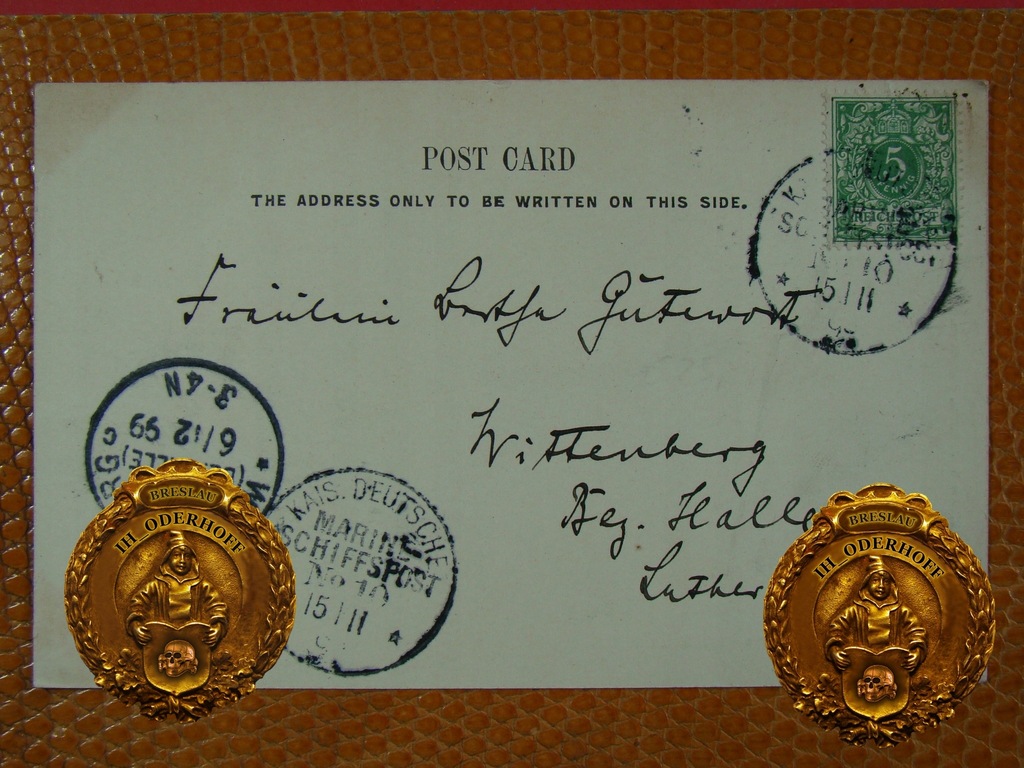 POST CARD
THE ADDRESS ONLY TO BE WRITTEN ON THIS SIDE.
5
REICHSPOST
No 10
15/11
Fräulein Bertha Gutewort
Wittenberg
Bez. Halle
Luther
3-4N
6/12 99
KAIS. DEUTSCHE
MARINE
SCHIFFSPOST
No 10
15/11
BRESLAU
IH_ODERHOFF
BRESLAU
IH_ODERHOFF